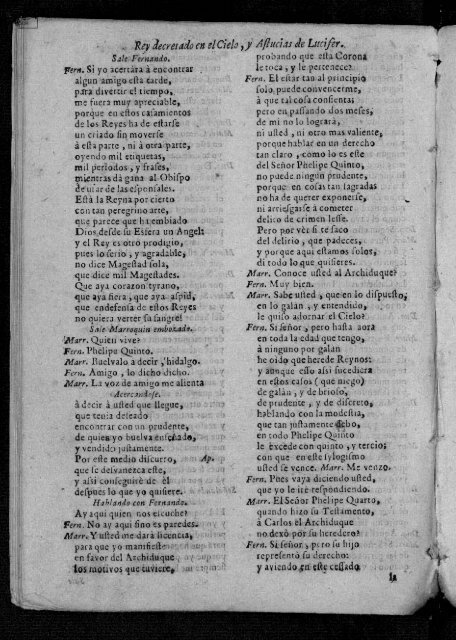 Rey decretado en el Cielo, y Astucias de Lucifer.
Sale Fernando.
Fern. Si yo acertàra à encontrar
algun amigo esta tarde,
para divertir el tiempo,
me fuera muy apreciable,
porque en estos casamientos
de los Reyes ha de estarse
un criado sin moverse
à esta parte, ni à otra parte,
oyendo mil etiquetas,
mil periodos, y frases,
mientras dà gana al Obispo
de usar de las esponsales.
Està la Reyna por cierto
con tan peregrino arte,
que parece que ha embiado
Dios desde su Esfera un Angel:
y el Rey es otro prodigio,
pues lo serio, y agradable,
no dice Magestad sola,
que dice mil Magestades.
Que aya corazon tyrano,
que aya fiera, que aya aspid,
que endefensa de estos Reyes
no quiera verter su sangre!
Sale Marroquin embozado.
Marr. Quien vive?
Fern. Phelipe Quinto.
Marr. Buelvalo a decir, hidalgo.
Fern. Amigo, lo dicho dicho.
Marr. La voz de amigo me alienta
Acercandose.
à decir à usted que llegue,
que tenia deseado
encontrar con un prudente,
de quien yo buelva enseñado,
y vendido justamente.
Por este medio discurro, Ap.
que se desvanezca este,
y assi conseguirè de èl
despues lo que yo quisiere.
Hablando con Fernando.
Ay aqui quien nos escuche?
Fern. No ay aqui sino es paredes.
Marr. Y usted me darà licencia,
para que yo manifieste
en favor del Archiduque
los motivos que tuviere,
probando que esta Corona
le toca, y le pertenece?
Fern. El estàr tan al principio
solo puede convencerme,
à que tal cosa consienta;
pero en passando dos meses,
de mi no lo lograrà,
ni usted, ni otro mas valiente,
porque hablar en un derecho
tan claro, como lo es este
del Señor Phelipe Quinto,
no puede ningun prudente,
porque en cosas tan sagradas
no ha de querer exponerse,
ni arriesgarse à cometer
delito de crimen lesse.
Pero por vèr si te saco
del delirio, que padeces,
y porque aqui estamos solos,
di todo lo que quisieres.
Marr. Conoce usted al Archiduque?
Fern. Muy bien.
Marr. Sabe usted, que en lo dispuesto,
en lo galàn, y entendido,
le quiso adornar el Cielo?
Fern. Si señor, pero hasta aora
en toda la edad que tengo,
à ninguno por galàn
he oìdo que herede Reynos:
y aunque esso assi sucediera
en estos casos (que niego)
de galàn, y de brioso,
de prudente, y de discreto,
hablando con la modestia,
que tan justamente debo,
en todo Phelipe Quinto
le excede con quinto, y tercio;
con que en este sylogismo
usted se vence. Marr. Me venzo.
Fern. Pues vaya diciendo usted,
que yo le irè respondiendo.
Marr. El Señor Phelipe Quarto,
quando hizo su Testamento,
à Carlos el Archiduque
no dexò por su heredero?
Fern. Si señor, pero su hijo
representò su derecho:
y aviendo en este cessado
la